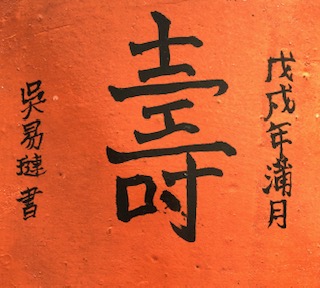 戊戌年蒲月
壽
吳易璉書